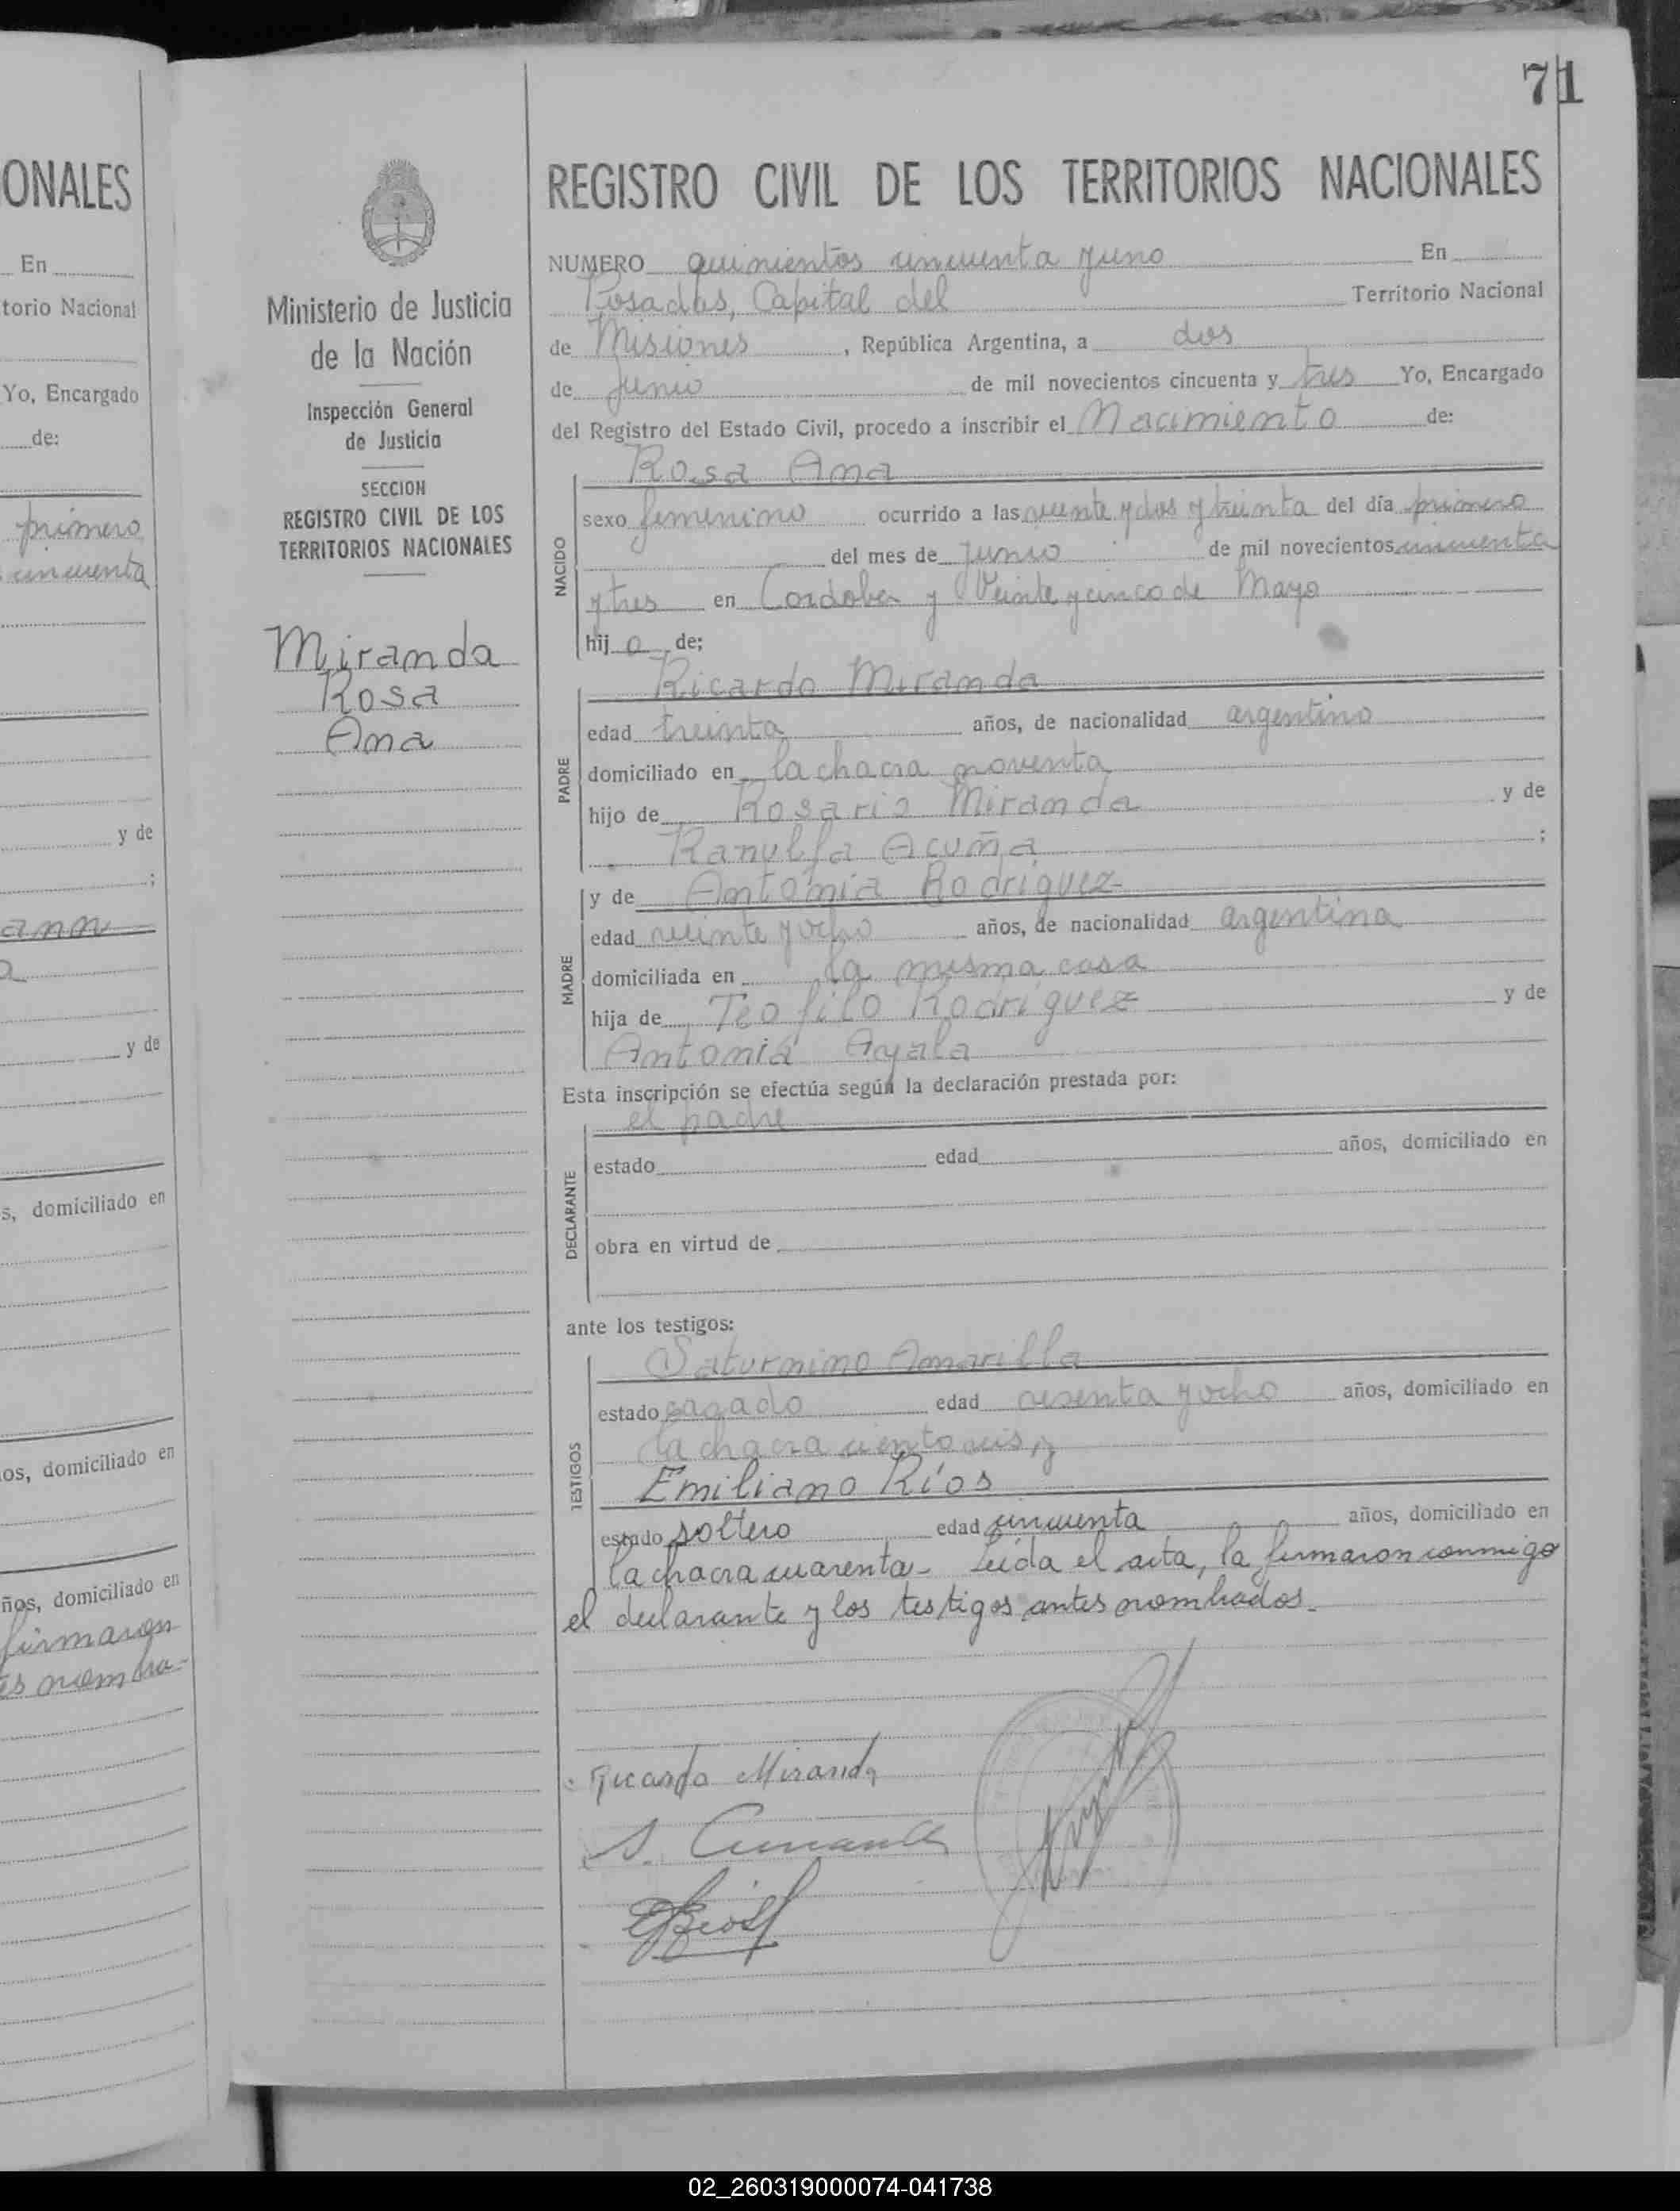 71
ONALES
En
torio Nacional
Yo, Encargado
de:
primero
cincuenta
y de
;
ann
a
y de
s, domiciliado en
os, domiciliado en
ños, domiciliado en
firmaron
es nombra-
Ministerio de Justicia
de la Nación
Inspección General
de Justicia
SECCION
REGISTRO CIVIL DE LOS
TERRITORIOS NACIONALES
Miranda
Rosa
Ana
REGISTRO CIVIL DE LOS TERRITORIOS NACIONALES
NUMERO quinientos cincuenta y uno En
Posadas, Capital del Territorio Nacional
de Misiones, República Argentina, a dos
de Junio de mil novecientos cincuenta y tres Yo, Encargado
del Registro del Estado Civil, procedo a inscribir el Nacimiento de:
Rosa Ana
NACIDO
sexo femenino ocurrido a las veinte y dos y treinta del día primero
del mes de Junio de mil novecientos cincuenta
y tres en Cordoba y Veinte y cinco de Mayo
hij a de;
Ricardo Miranda
PADRE
edad treinta años, de nacionalidad argentino
domiciliado en la chacra noventa
hijo de Rosario Miranda y de
Ranulfa Acuña ;
y de Antonia Rodriguez
MADRE
edad veinte y ocho años, de nacionalidad argentina
domiciliada en la misma casa
hija de Teofilo Rodriguez y de
Antonia Ayala
Esta inscripción se efectúa según la declaración prestada por:
el padre
DECLARANTE
estado edad años, domiciliado en
obra en virtud de
ante los testigos:
Saturnino Amarilla
TESTIGOS
estado casado edad cesenta y ocho años, domiciliado en
la chacra ciento seis, y
Emiliano Ríos
estado soltero edad cincuenta años, domiciliado en
la chacra cuarenta- Leída el acta, la firmaron conmigo
el declarante y los testigos antes nombrados.
Ricardo Miranda
02_260319000074-041738